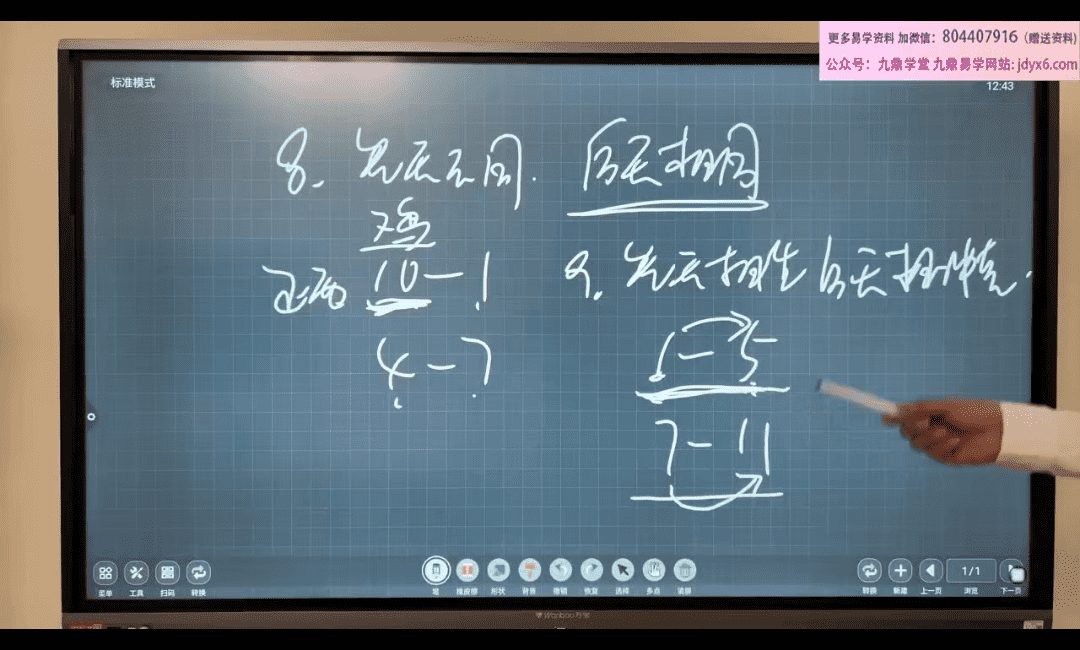 更多易学资料 加微信：804407916（赠送资料）
公众号：九鼎学堂 九鼎易学网站：jdyx6.com
标准模式
12:43
8. 先天不同. 后天相同
鸡
10-1
4-7
9. 先天相生 后天相
1-5
7-11
菜单 工具 扫码 转换
笔 橡皮擦 形状 背景 撤销 恢复 选择 多点 清屏
转换 新建 上一页 1/1 浏览 下一页
Wanbao